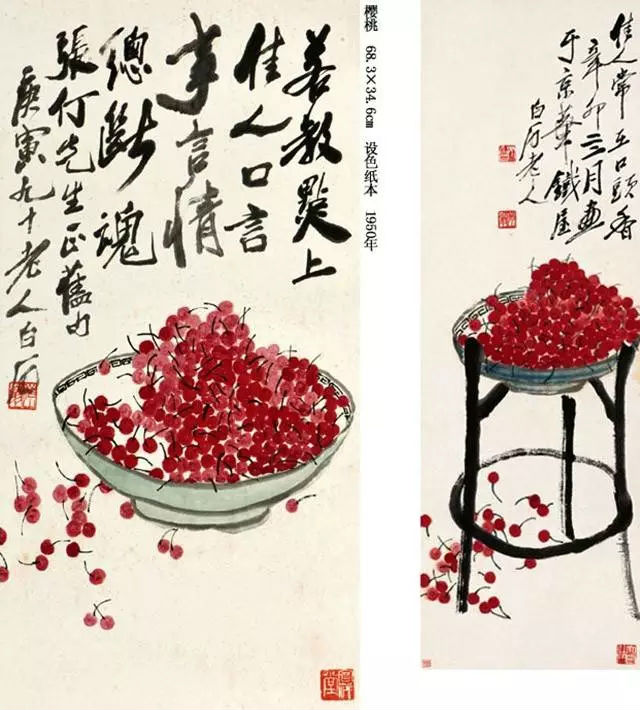 若教點上
佳人口言
事言情
總斷魂
張仃先生正舊句
庚寅九十老人白石
櫻桃 68.3×34.6cm 设色纸本 1950年
佳人常在口頭香
辛卯三月畫
于京華鐵屋
白石老人